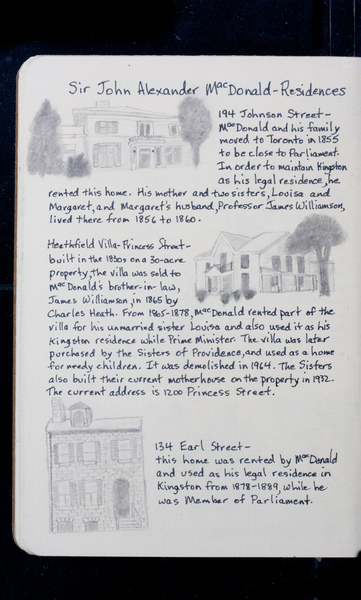 Sir John Alexander MacDonald-Residences
194 Johnson Street-
MacDonald and his family
moved to Toronto in 1855
to be close to Parliament.
In order to maintain Kingston
as his legal residence, he
rented this home. His mother and two sisters, Louisa and
Margaret, and Margaret's husband, Professor James Williamson,
lived there from 1856 to 1860.
Heathfield Villa-Princess Street-
built in the 1850s on a 30-acre
property, the villa was sold to
MacDonald's brother-in-law,
James Williamson, in 1865 by
Charles Heath. From 1865-1878, MacDonald rented part of the
villa for his unmarried sister Louisa and also used it as his
Kingston residence while Prime Minister. The villa was later
purchased by the Sisters of Providence, and used as a home
for needy children. It was demolished in 1964. The Sisters
also built their current motherhouse on the property in 1932.
The current address is 1200 Princess Street.
134 Earl Street-
this home was rented by MacDonald
and used as his legal residence in
Kingston from 1878-1889, while he
was Member of Parliament.